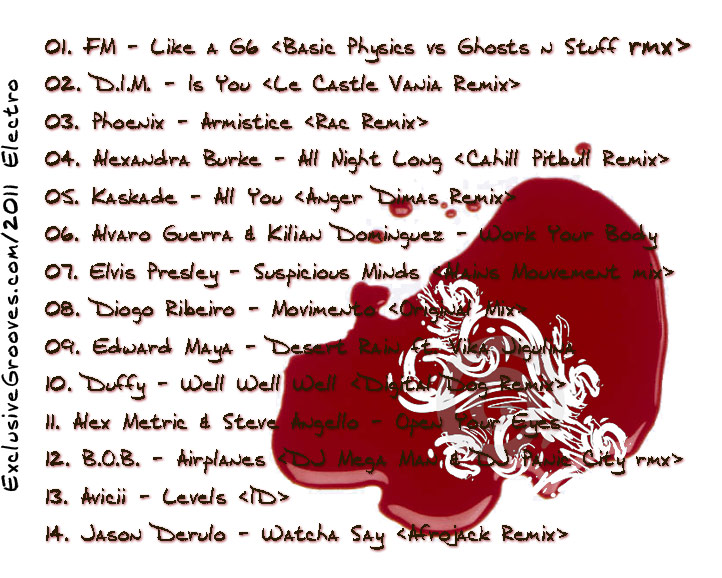 01. FM - Like a G6 <Basic Physics vs Ghosts n Stuff rmx>
02. D.I.M. - Is You <Le Castle Vania Remix>
03. Phoenix - Armistice <Rac Remix>
04. Alexandra Burke - All Night Long <Cahill Pitbull Remix>
05. Kaskade - All You <Anger Dimas Remix>
06. Alvaro Guerra & Kilian Dominguez - Work Your Body
07. Elvis Presley - Suspicious Minds <Alains Mouvement mix>
08. Diogo Ribeiro - Movimento <Original Mix>
09. Edward Maya - Desert Rain ft Vika Jigulina
10. Duffy - Well Well Well <Digital Dog Remix>
11. Alex Metric & Steve Angello - Open Your Eyes
12. B.O.B. - Airplanes <DJ Mega Man & DJ Panic City rmx>
13. Avicii - Levels <ID>
14. Jason Derulo - Watcha Say <Afrojack Remix>
ExclusiveGrooves.com/2011 Electro